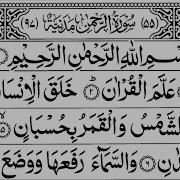 (٥٥) سُورَةُ الرَّحْمٰنِ مَدَنِيَّةٌ (٩٧)
سْمِ اللّٰهِ الرَّحْمٰنِ الرَّحِيْمِ
عَلَّمَ الْقُرْاٰنَ خَلَقَ الْاِنْسَا
لشَّمْسُ وَالْقَمَرُ بِحُسْبَانٍ
وَالسَّمَآءَ رَفَعَهَا وَوَضَعَ